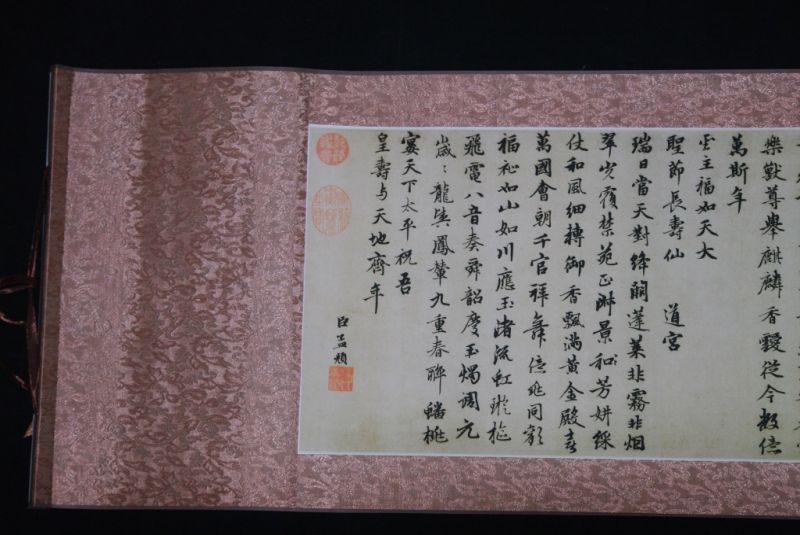 樂獸尊舉麒麟香靉從今數億
萬斯年
主福如天大
聖節長壽仙 道宮
瑞日當天對絳闕蓬萊非霧非烟
翠光覆禁苑正淑景和芳妍綵
仗和風細轉御香飄滿黃金殿喜
萬國會朝千官拜舞億兆同歡
福祉如山如川應玉渚流虹璇樞
飛電八音奏舜韶慶玉燭調元
歲〻龍輿鳳輦九重春醉蟠桃
宴天下太平祝吾
皇壽与天地齊年
臣孟頫